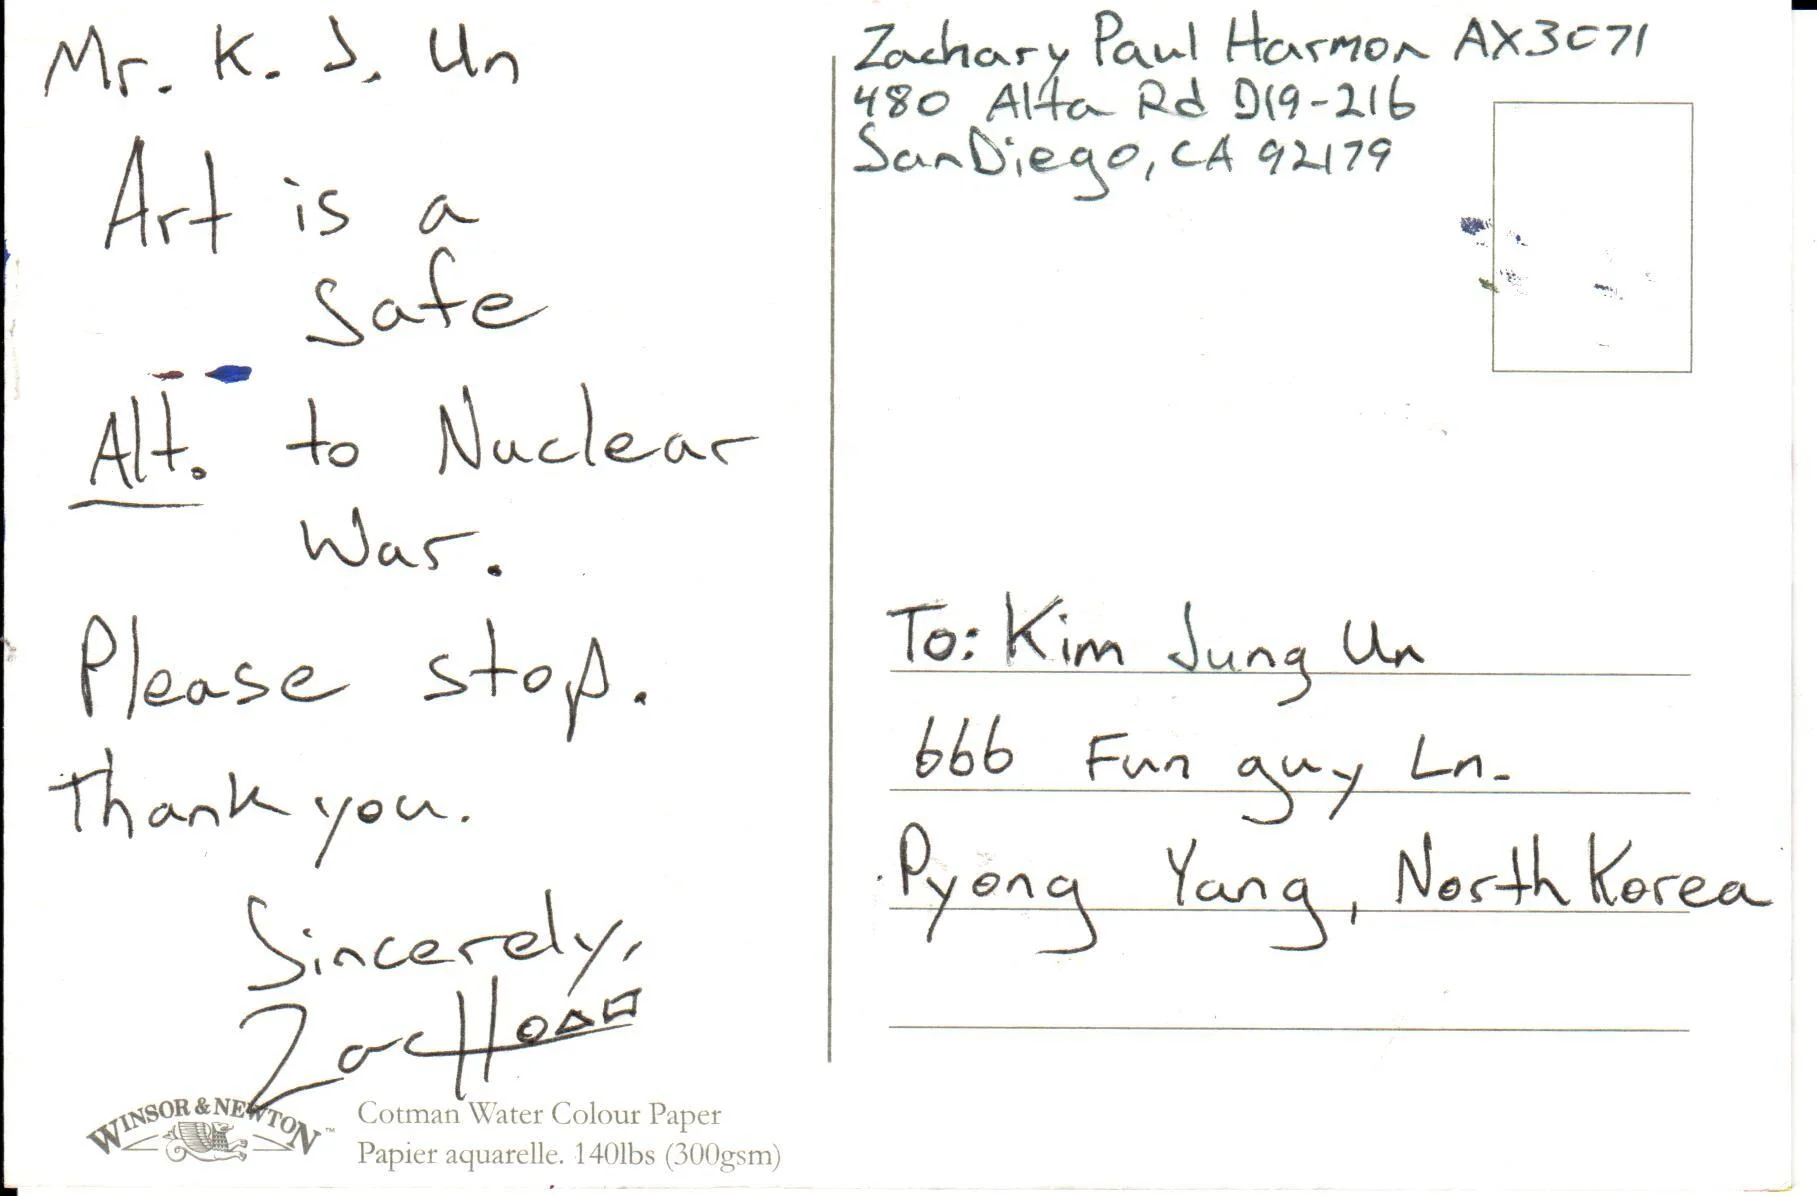 Mr. K. J. Un
Art is a
safe
Alt. to Nuclear
War.
Please stop.
Thank you.
Sincerely,
Zac H
WINSOR & NEWTON™
Cotman Water Colour Paper
Papier aquarelle. 140lbs (300gsm)
Zachary Paul Harmon AX3C71
480 Alta Rd D19-216
San Diego, CA 92179
To: Kim Jung Un
666 Fun guy Ln.
Pyong Yang, North Korea